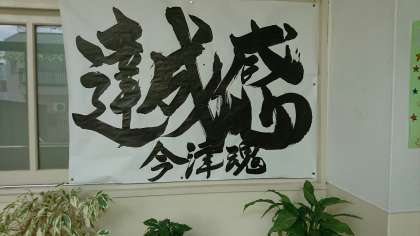 達成感
今津魂